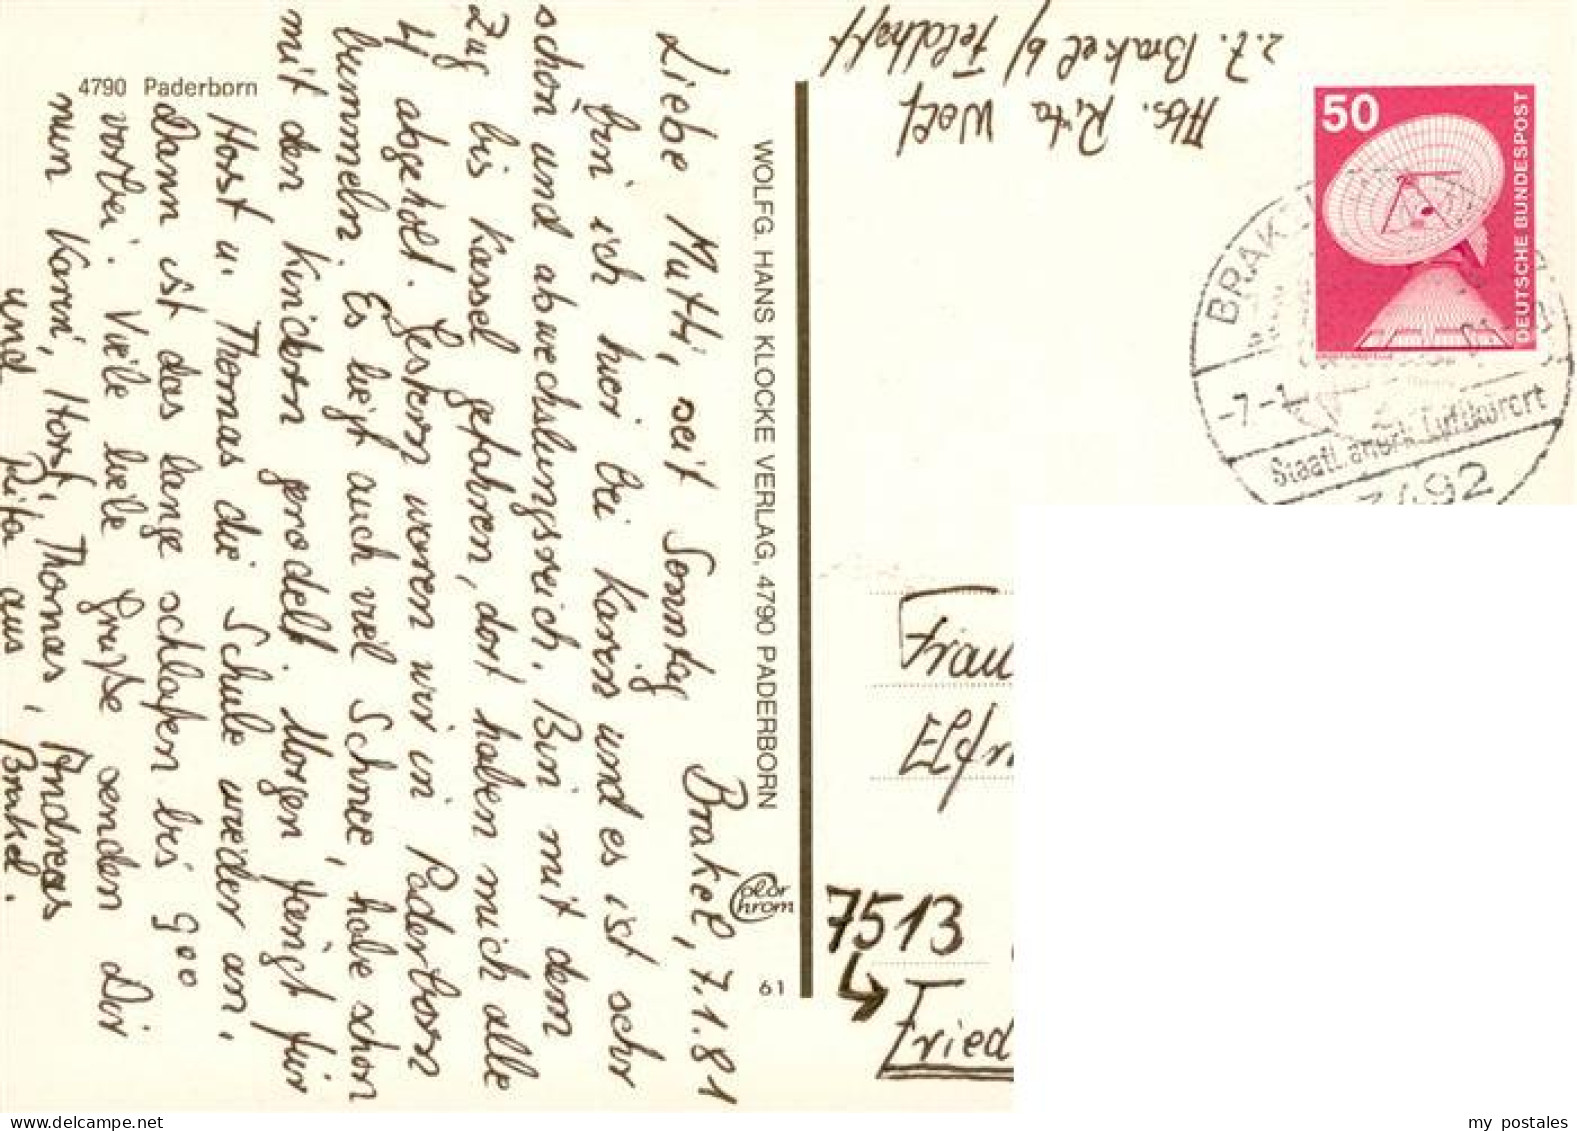 4790 Paderborn
Brakel, 7.1.81
Liebe Mutti, seit Sonntag
bin ich hier bei Karin und es ist sehr
schön und abwechslungsreich. Bin mit dem
Zug bis Kassel gefahren, dort haben mich alle
4 abgeholt. Gestern waren wir in Paderborn
bummeln. Es liegt auch viel Schnee, habe schon
mit den Kindern gerodelt. Morgen fängt für
Horst u. Thomas die Schule wieder an,
Dann ist das lange schlafen bis 9⁰⁰
vorbei. Viele liebe Grüße senden Dir
nun Karin, Horst, Thomas, Andreas
und Rita aus Brakel.
WOLFG. HANS KLOCKE VERLAG, 4790 PADERBORN
Color Chrom
61
Abs. Rita Wolf
z.Z. Brakel b/ Feldhoff
50
DEUTSCHE BUNDESPOST
BRAK
-7.-1
Staatl. anerk. Luftkurort
3492
Frau
Elfr
7513
Fried
my postales